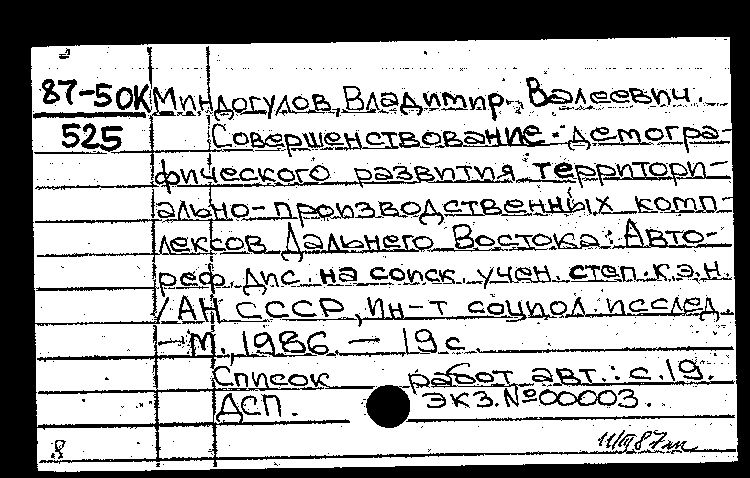 87-5 ОК Миндогулов, Владимир Валеевич.
525 Совершенствование демогра-
фического развития территори-
ально-производственных комп-
лексов Дальнего Востока: Авто-
реф. дис. на соиск. учен. степ. к.э.н.
/АН СССР, Ин-т социол. исслед.
—М., 1986. — 19 с.
Список работ авт.: с. 19.
ДСП. ЭКЗ. №00003.
8